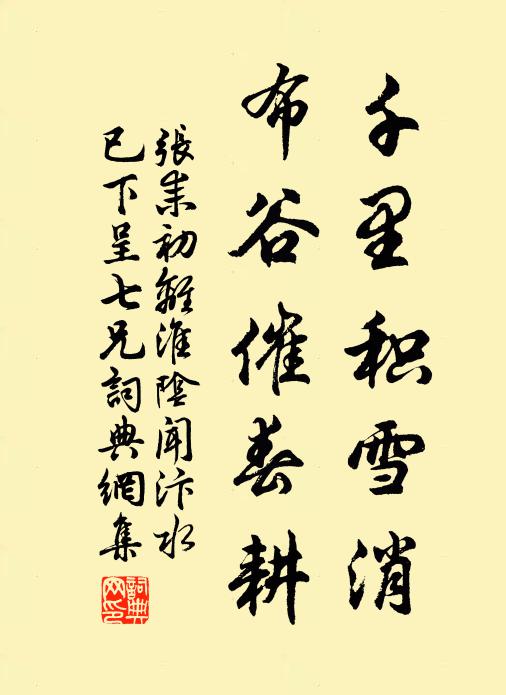 千里积雪消
布谷催春耕
張耒初離淮陰聞汴水
已下呈七兄詞典網集
詞典
网印